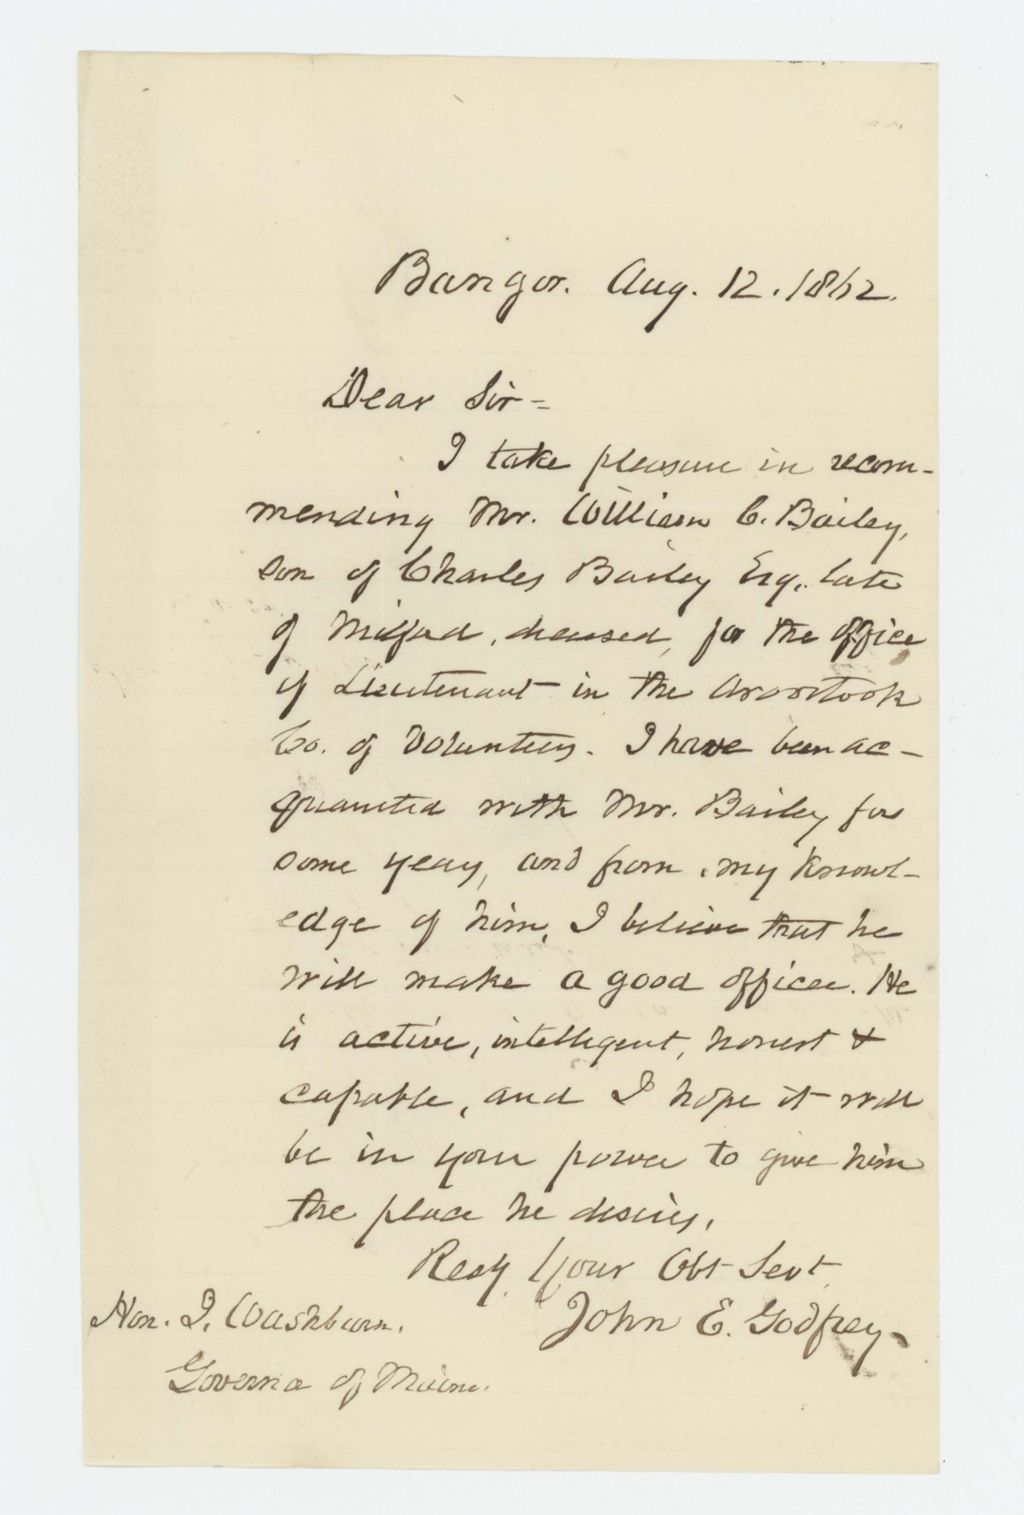 Bangor. Aug. 12. 1862.
Dear Sir-
I take pleasure in recom-
mending Mr. William C. Bailey,
son of Charles Bailey Esq. late
of Milford, deceased, for the office
of Lieutenant in the Aroostook
Co. of Volunteers. I have been ac-
quainted with Mr. Bailey for
some years, and from my knowl-
edge of him, I believe that he
will make a good officer. He
is active, intelligent, honest &
capable, and I hope it will
be in your power to give him
the place he desires.
Resy. Your Obt Sevt.
John E. Godfrey.
Hon. I. Washburn.
Governor of Maine.